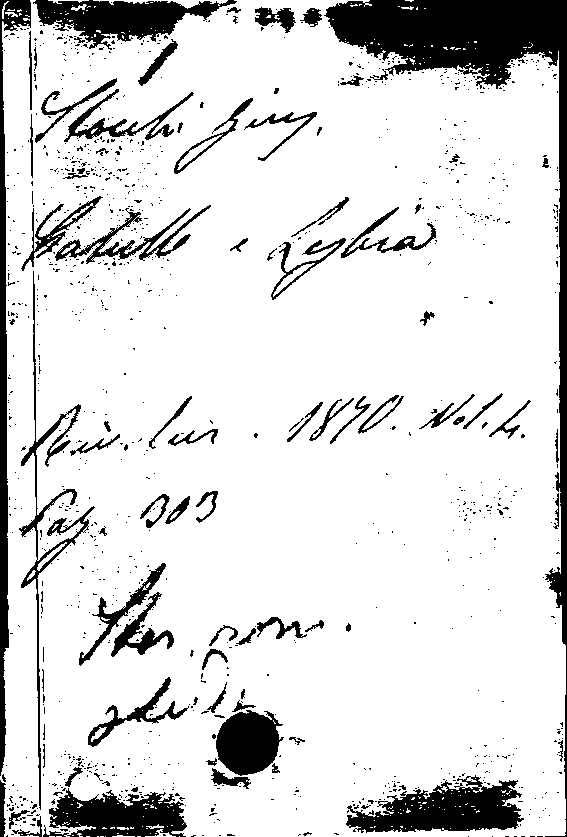 Stocchi Gius.
Catullo e Lesbia
Riv. Eur. 1870. Vol. 4.
Pag. 303
rom.